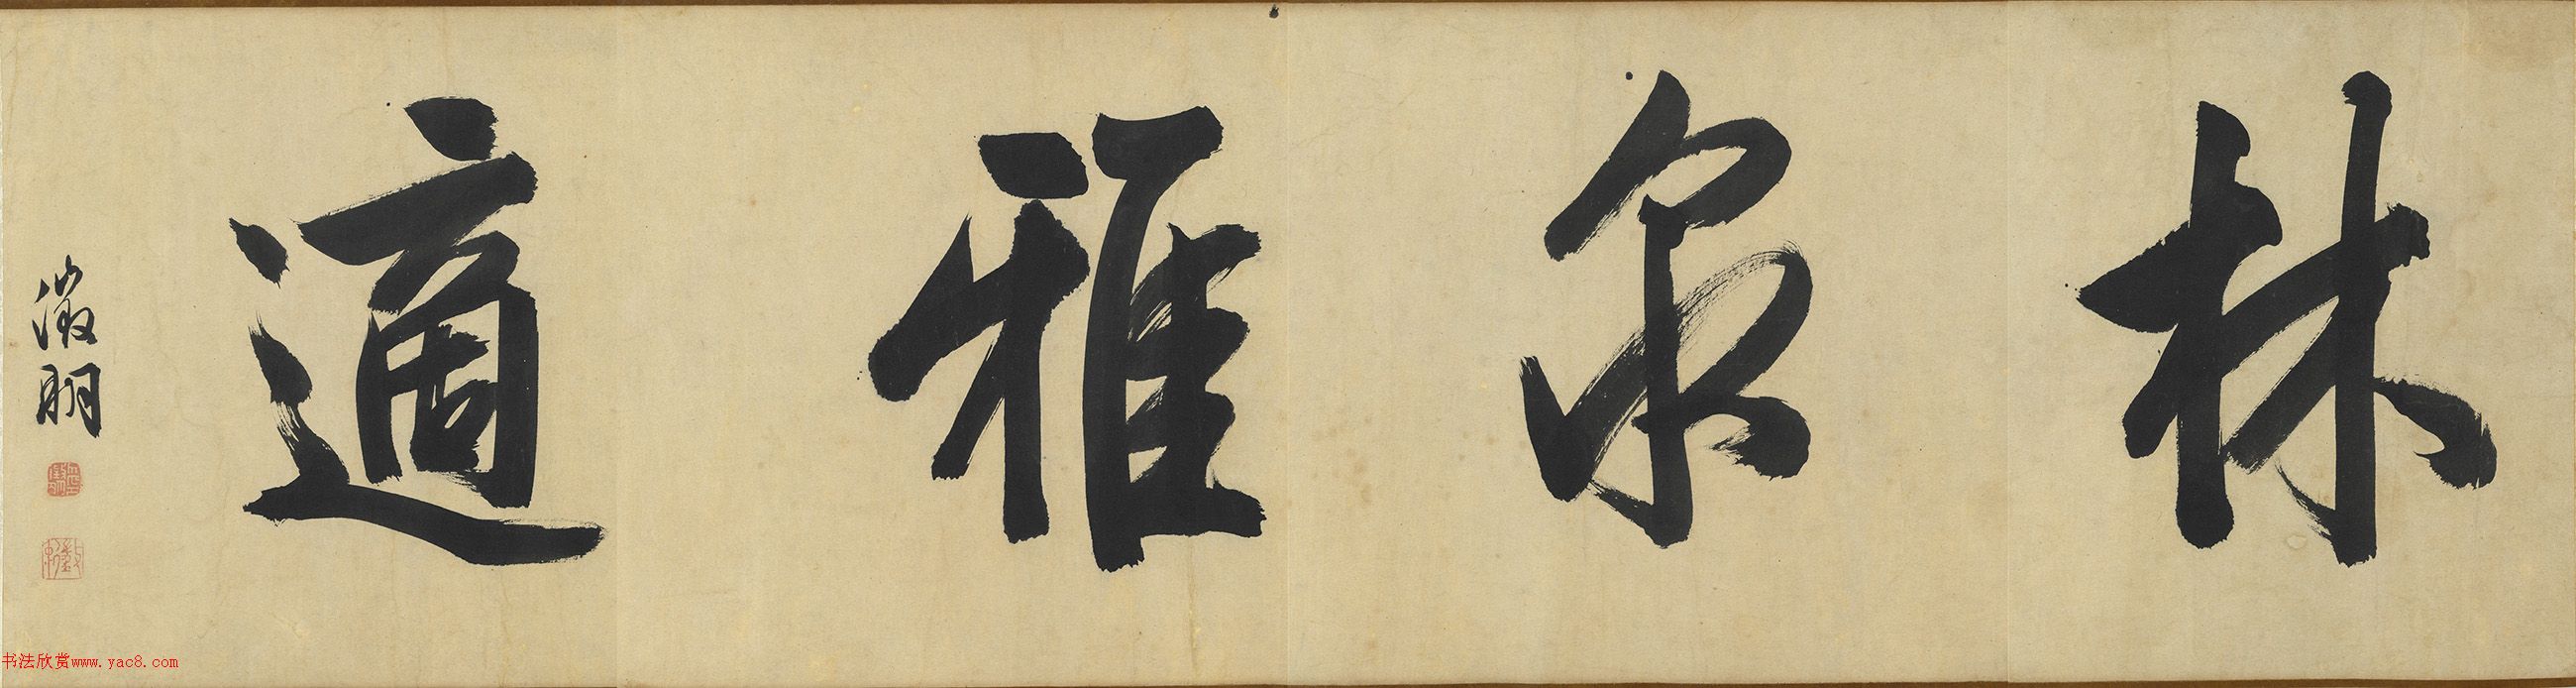 林泉雅適
徵明
书法欣赏www.yac8.com